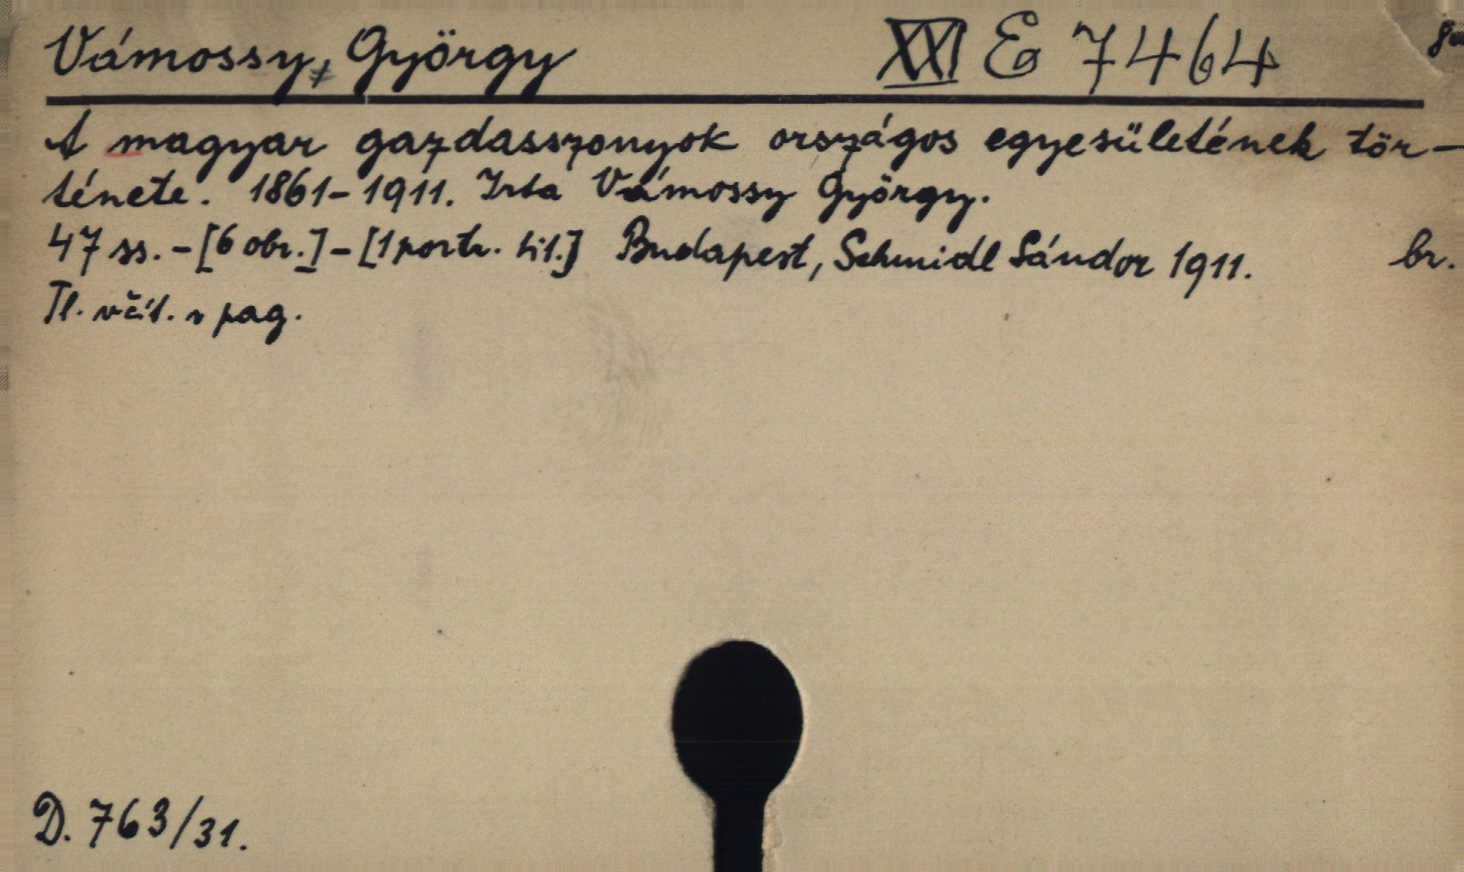 Vámossy, György XXI E 7464
A magyar gazdasszonyok országos egyesületének tör-
ténete. 1861-1911. Irta Vámossy György.
47 ss. - [6 obr.] - [1 portr. tit.] Budapest, Schmidl Sándor 1911. br.
Tl. včít. v pag.
D. 763/31.